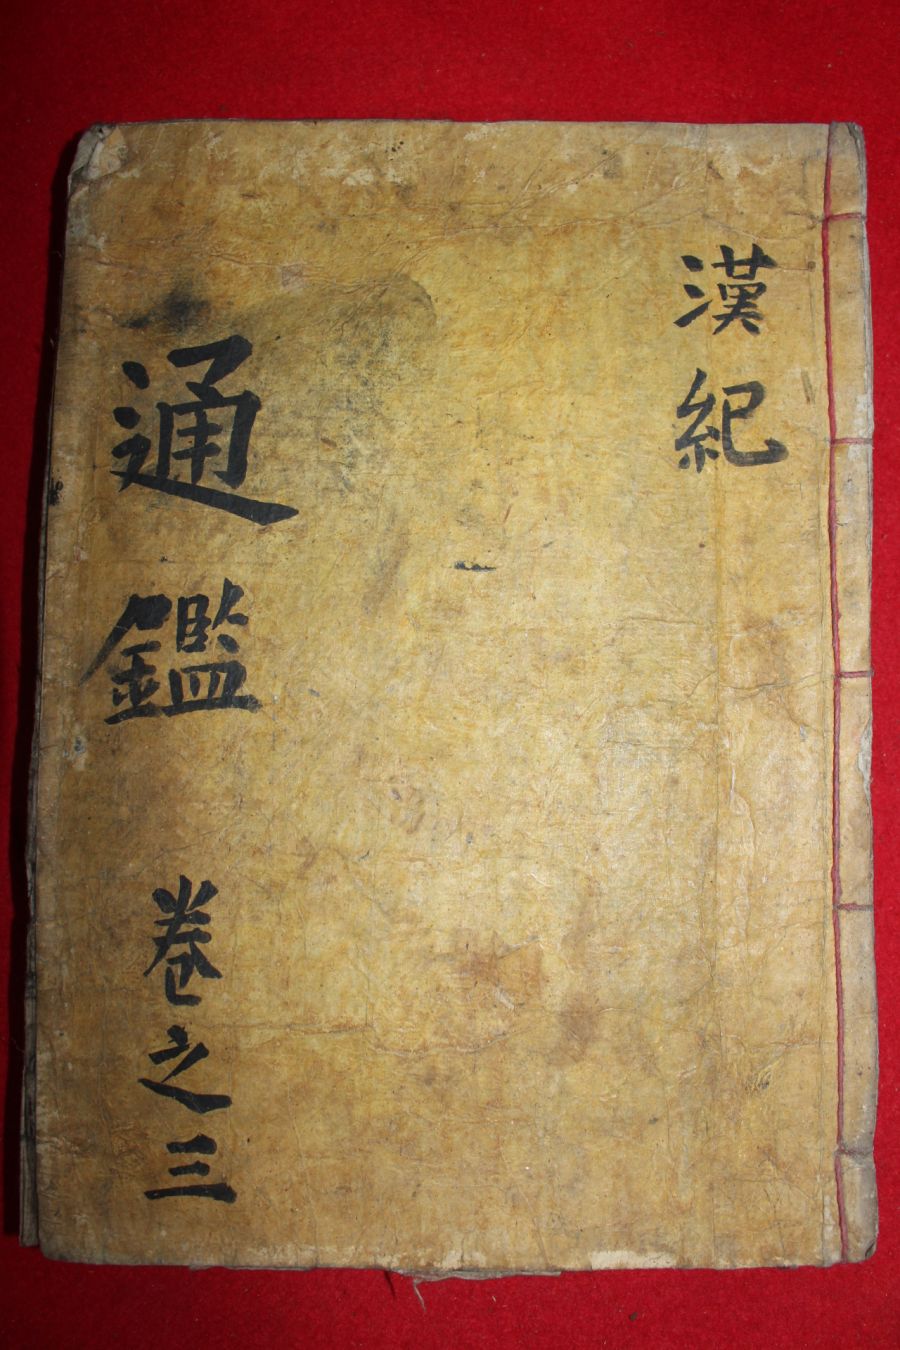 漢紀
通鑑 卷之三